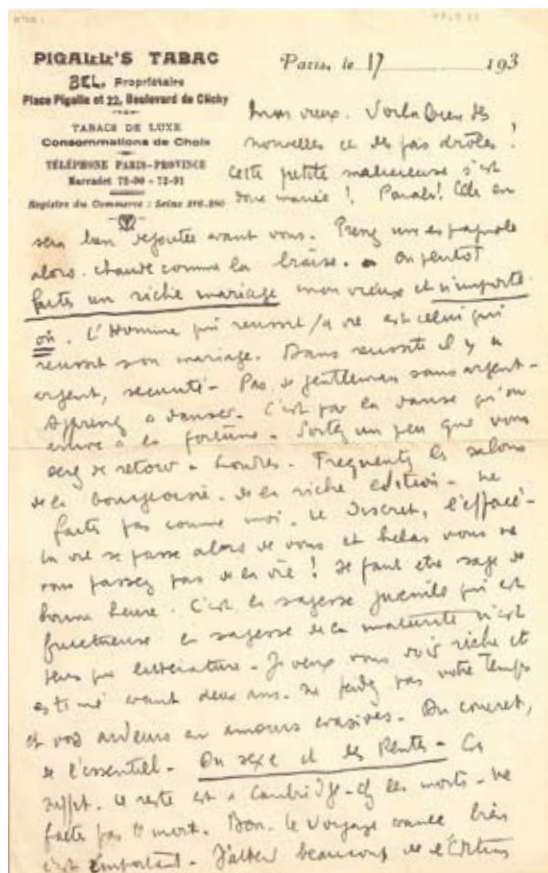 PIGALLE'S TABAC
BEL, Propriétaire
Place Pigalle et 22, Boulevard de Clichy
TABACS DE LUXE
Consommations de Choix
TÉLÉPHONE PARIS-PROVINCE
Registre du Commerce : Seine
Paris, le 17 193
mon vieux. Voilà bien des
nouvelles et des pas drôles !
Cette petite malicieuse s'est
donc mariée ! Elle en
sera bien avant vous. Prenez une espagnole
alors. chaude comme la braise. ou plutot
faites un riche mariage mon vieux et n'importe
où. L'Homme qui reussit sa vie est celui qui
reussit son mariage. Dans reussite il y a
argent, securité - Pas de gentleman sans argent -
Apprenez a danser. C'est par la danse qu'on
arrive a la fortune - Sortez un peu que vous
serez de retour a Londres. Frequentez les salons
de la bourgeoisie. de la riche edition - ne
faites pas comme moi. Le discret, l'effacé -
La vie se passe alors de vous et helas vous ne
vous passez pas de la vie ! Il faut etre sage de
bonne heure. C'est la sagesse juvenile qui est
fructueuse la sagesse de la maturité n'est
plus que litterature - Je veux vous voir riche et
estimé avant deux ans. ne perdez pas votre temps
et vos ardeurs en amours evasives. Du concret,
de l'essentiel. Du sexe et des Rentes - Ca
suffit. Le reste est a Cambridge les morts - ne
faites pas le mort. Bon. Le Voyage avance très
c'est important - J'attend beaucoup de